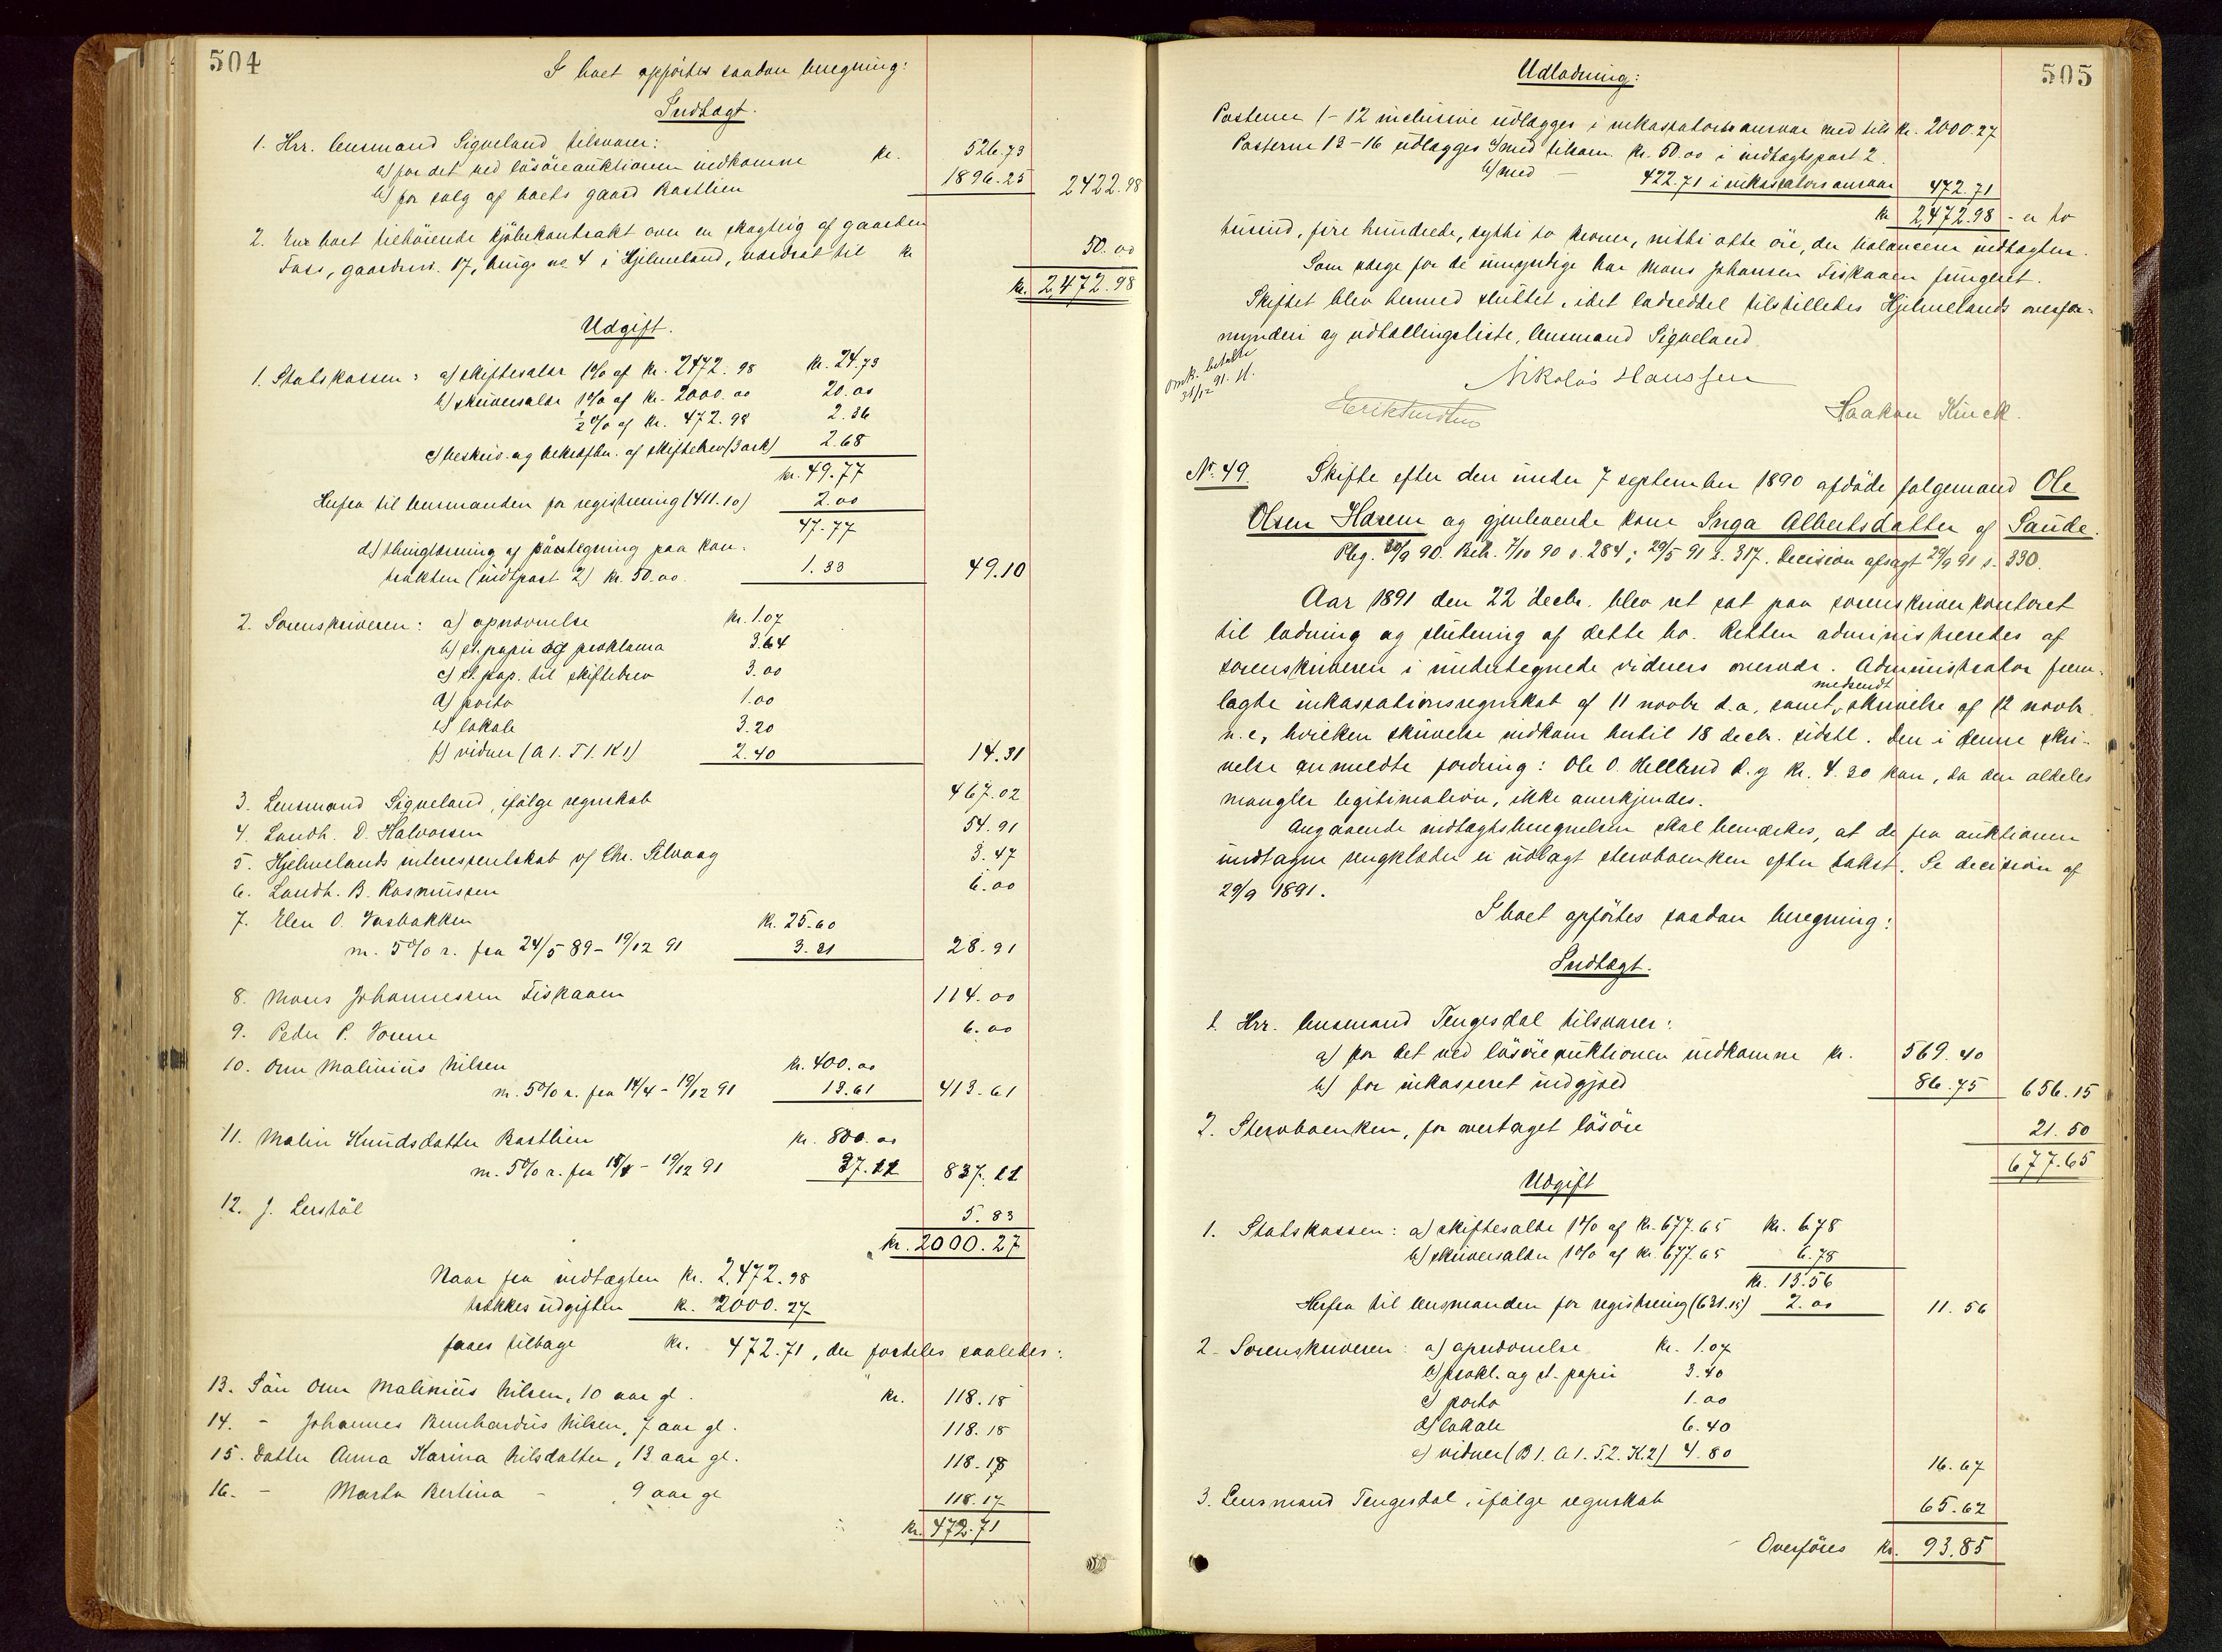 504
I boet opførtes saadan beregning:
Indtægt.
1. Hrr. lensmand Sigveland tilsvarer:
a) for det ved løsøreauktionen indkomne kr. 526.73
b) for salg af boets gaard Bastlien 1896.25 2422.98
2. En boet tilhørende kjøbekontrakt over en skogteig af gaarden
Foss, gaardsno. 17, brugs no. 4 i Hjelmeland, værdsat til kr 50.00
kr. 2,472.98
Udgift.
1. Statskassen: a) skiftesalær 1% af kr. 2472.98 kr. 24.73
b) skriversalær 1% af kr. 2000.00 20.00
½% af kr. 472.98 2.36
c) beskriv. og bekræftn. af skiftebrev (3 ark) 2.68
kr. 49.77
Herfra til lensmanden for registrering (411.10) 2.00
47.77
d) thinglæsning af paategning paa kon-
trakten (indtpost 2) kr. 50.00. 1.33 49.10
2. Sorenskriveren: a) opnævnelse kr. 1.07
b) st. papir og proklama 3.64
c) st. pap. til skiftebrev 3.00
d) porto 1.00
e) lokale 3.20
f) vidner (A 1. T 1. K 1) 2.40 14.31
3. Lensmand Sigveland, ifølge regnskab 467.02
4. Landh. D. Halvorsen 54.91
5. Hjelmelands interessentskab v/ Chr. Selvaag 3.47
6. Landh. B. Rasmussen 6.00
7. Elen O. Vasbakken kr. 25.60
m. 5% r. fra 24/5 89 - 19/12 91 3.31 28.91
8. Mons Johannessen Fiskaaen 114.00
9. Peder P. 6.00
10. Omm Malinius Nilsen kr. 400.00
m. 5% r. fra 14/4 - 19/12 91 13.61 413.61
11. Malin Knudsdatter Bastlien kr. 800.00
m. 5% r. fra - 19/12 91 37.22 837.22
12. J. Lerstøl 5.83
kr. 2000.27
Naar fra indtægten kr. 2,472.98
trækkes udgiften kr. 2000.27
faaes tilbage kr. 472.71, der fordeles saaledes:
13. Søn Omm Malinius Nilsen, 10 aar gl. kr. 118.18
14. - Johannes Bernhardus Nilsen, 7 aar gl. 118.18
15. Datter Anna Karina Nilsdatter, 13 aar gl. 118.18
16. - Marta Bertina - , 9 aar gl 118.17
kr. 472.71
505
Udlodning:
Posterne 1-12 inclusive udlægges i inkassators ansvar med tils. kr. 2000.27
Posterne 13-16 udlægges a) med tilsam. kr. 50.00 i indtægtspost 2.
b) med - 422.71 i inkassators ansvar 472.71
kr 2,472.98 - er to
tusind, fire hundrede, sytti to kroner, nitti otte øre, der balancerer indtægten.
Som værge for de umyndige har Mons Johansen Fiskaaen fungeret.
Skiftet blev hermed sluttet, idet lodseddel tilstilledes Hjelmelands overfor-
mynderi og udtællingsliste, lensmand Sigveland.
Omk. betalte
31/12 91. H.
Nikolai Hanssen
Haakon Kinck.
No. 49. Skifte efter den under 7 september 1890 afdøde folgemand Ole
Olsen Hærem og gjenlevende kone Inga Albertsdatter af Saude.
Reg. 20/9 90. Beh. 7/10 90 s. 284; 29/5 91 s. 317. Decision afsagt 29/9 91 s. 330.
Aar 1891 den 22 decbr. blev ret sat paa sorenskriverkontoret
til lodning og slutning af dette bo. Retten administreredes af
sorenskriveren i undertegnede vidners overvær. Administrator frem-
lagte inkassationsregnskab af 11 novbr d.a. samt medsendt skrivelse af 12 novbr.
n.e, hvilken skrivelse indkom hertil 18 decbr. sidstl. Den i denne skri-
velse anmeldte fordring: Ole O. Helland d.y. kr. 4.20 kan, da den aldeles
mangler legitimation, ikke anerkjendes.
Angaaende indtægtsberegnelsen skal bemærkes, at de fra auktionen
undtagne sengklæder er udlagt stervboenken efter takst. Se decision af
29/9 1891.
I boet opførtes saadan beregning:
Indtægt.
1. Hrr. lensmand Tengesdal tilsvarer:
a) for det ved løsøreauktionen indkomne kr. 569.40
b) for inkasseret indgjæld 86.75 656.15
2. Stervboenken, for overtaget løsøre 21.50
677.65
Udgift
1. Statskassen: a) skiftesalær 1% af kr. 677.65 kr. 6.78
b) skriversalær 1% af kr. 677.65 6.78
kr. 13.56
Herfra til lensmanden for registrering (631.15) 2.00 11.56
2. Sorenskriveren: a) opnævnelse kr. 1.07
b) prokl. og st. papir 3.40
c) porto 1.00
d) lokale 6.40
e) vidner (B 1. A 1. T. 2. K. 2) 4.80 16.67
3. Lensmand Tengesdal, ifølge regnskab 65.62
Overføres kr. 93.85